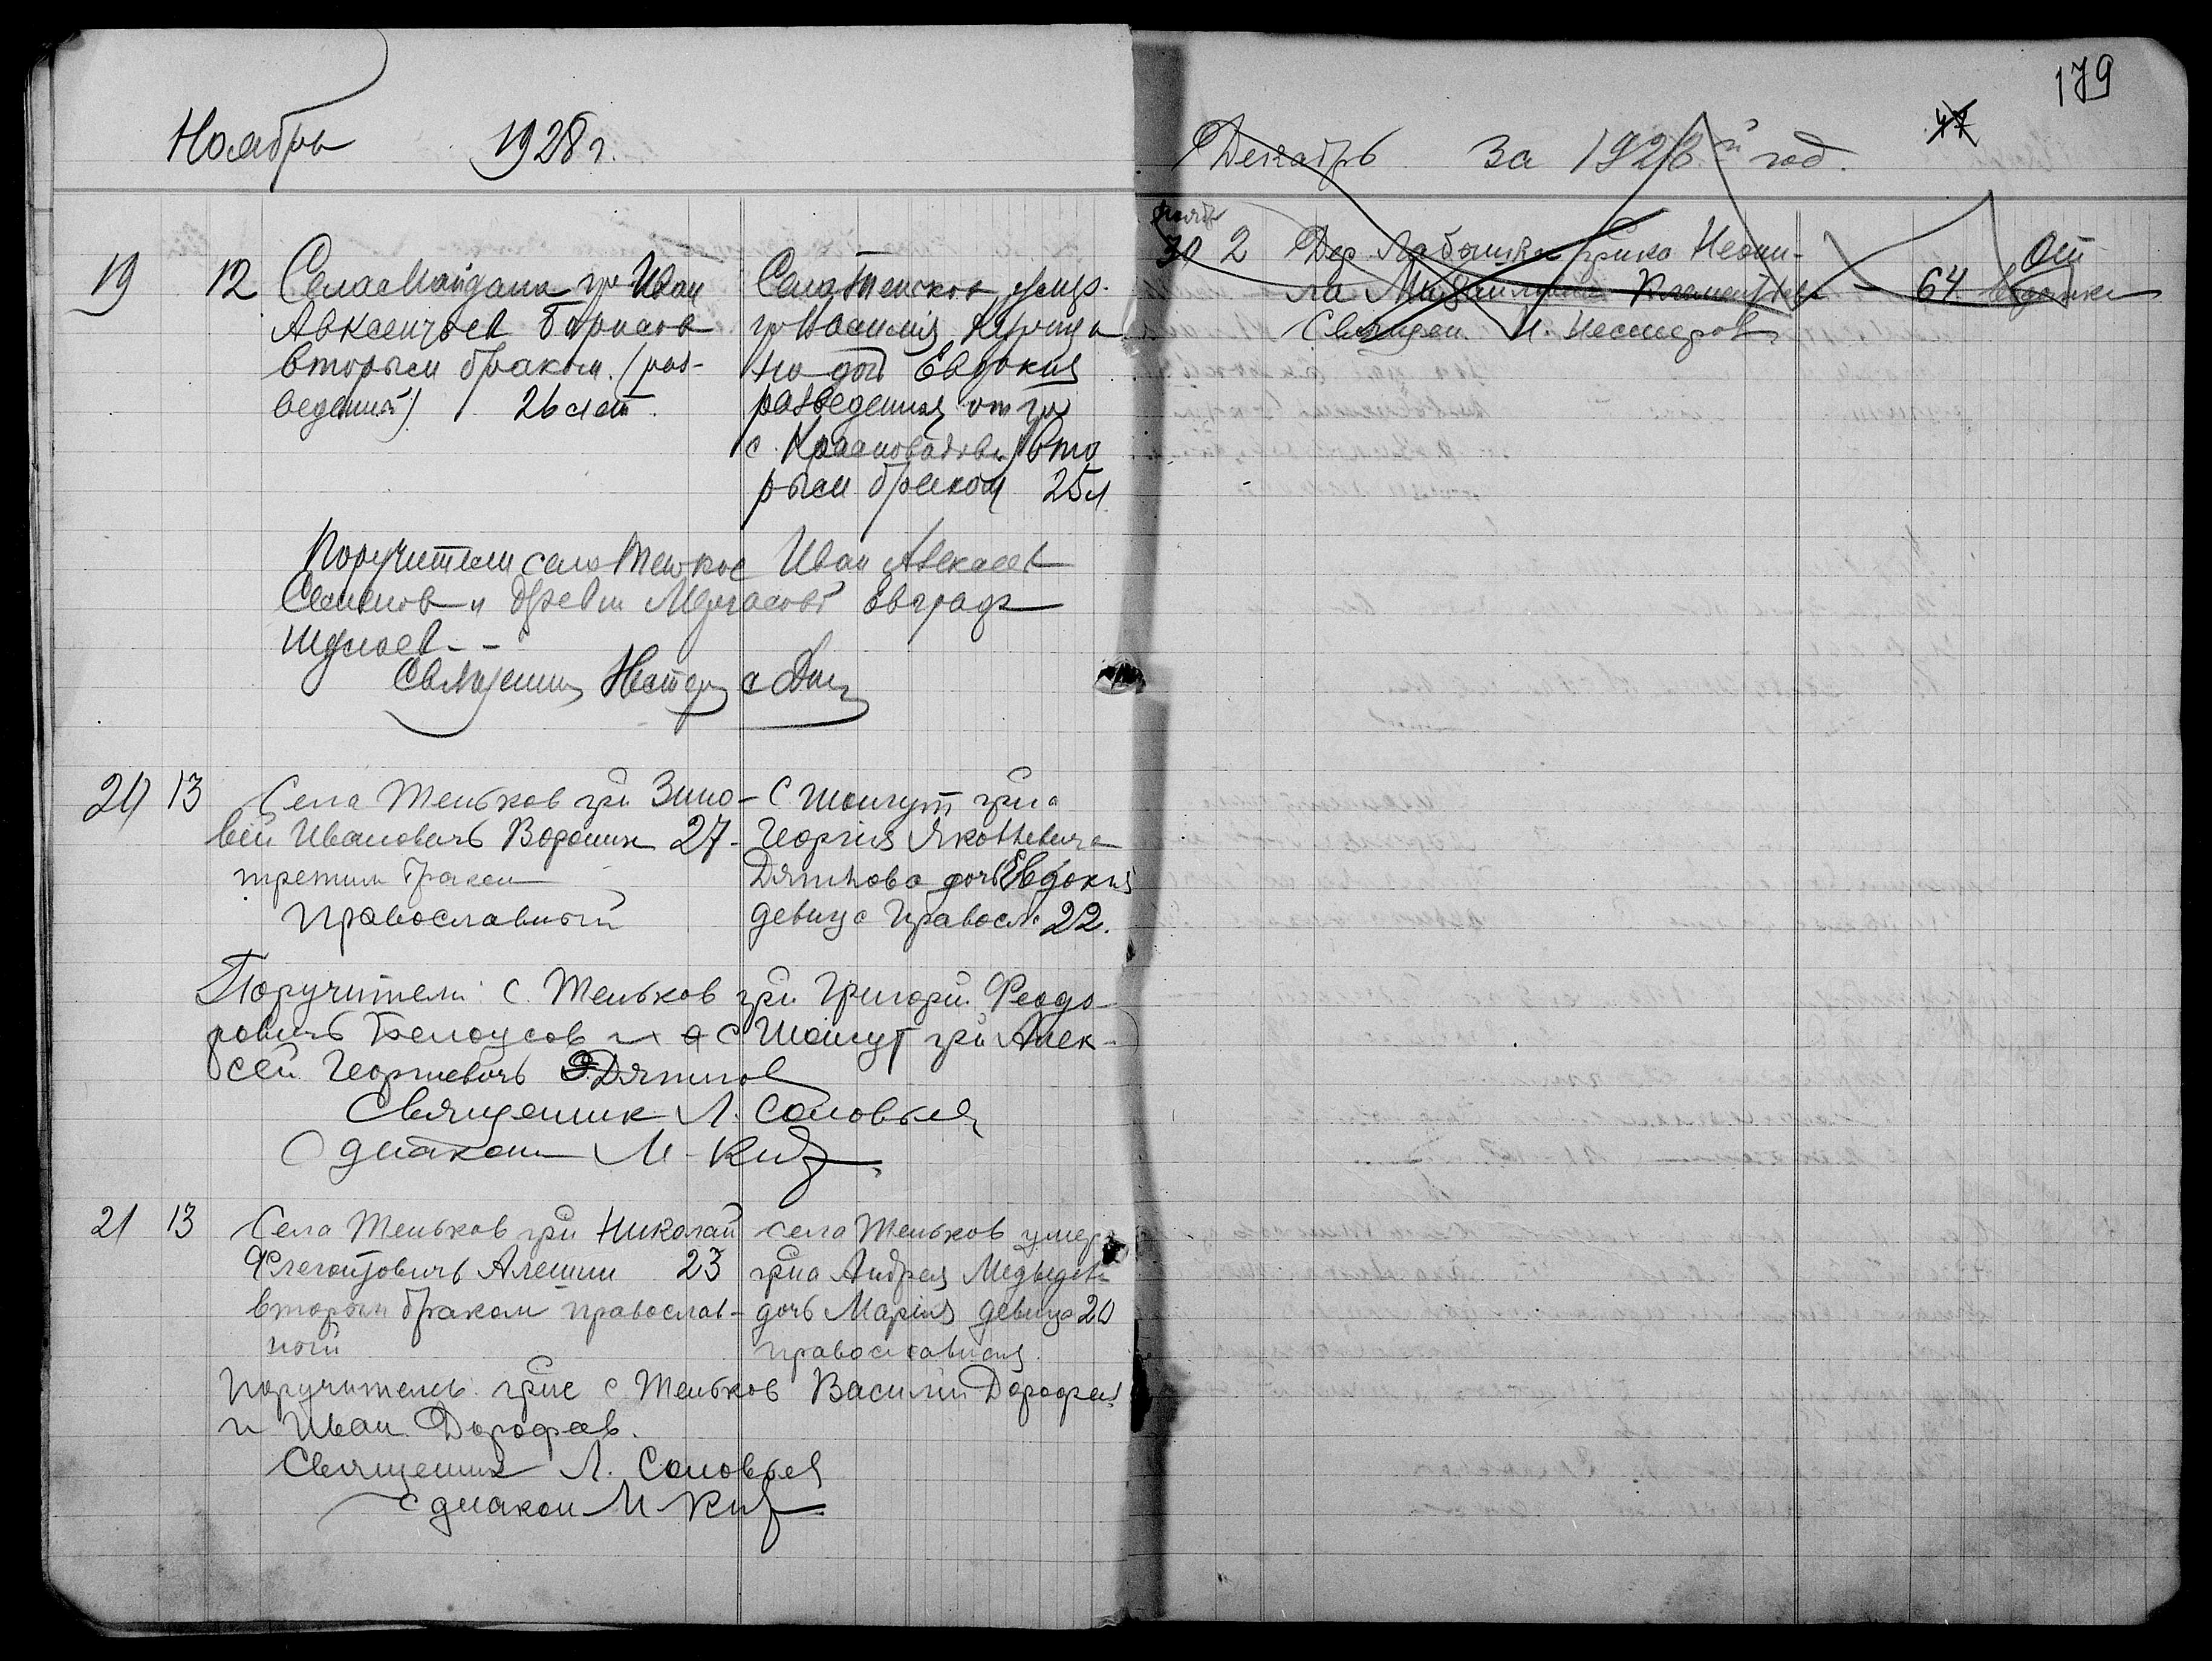 Ноябрь 1928 г.
19 12 Села Майдана гр Иван
Авксентьев Борисов
вторым браком. (раз-
веденный) 26 лет.
Села Теньков умер.
гр Василия
дочь Евдокия
разведенная от гр
с. Красновидова вто
рым браком 25 л
Поручители села Теньков Иван Алексеев
Семенов и древни Евграф
Священник Нестеров с Диак
20 13 Села Теньков грн Зино-
вей Иванович Водонин 27-
третьим браком
Православный
С Шонгут грна
Георгия Яковлевича
Дятлова дочь Евдокия
девица Правосл. 22.
Поручители: С. Теньков грн Григорий Феодо-
ровичъ Белоусов и с Шонгут грн Алек-
сей Георгиевичъ Дятлов
Священник Л. Соловьев
С диаконом М. Киб
21 13 Села Теньков грн Николай
Флегонтовичъ Алешин 23
вторым браком православ-
ный
села Теньков умер
грна Андрея Медведева
дочь Мария девица 20
православная.
Поручители: грне с Теньков Василий Дорофеев
и Иван Дорофеев.
Священник Л. Соловьев
с диакон М Киб
179
47
Декабрь за 1928й год.
ноябр
30 2 Дер. грнка Неони-
ла Михайловна Климентьева 64 От
водянки
Священ. И. Нестеров